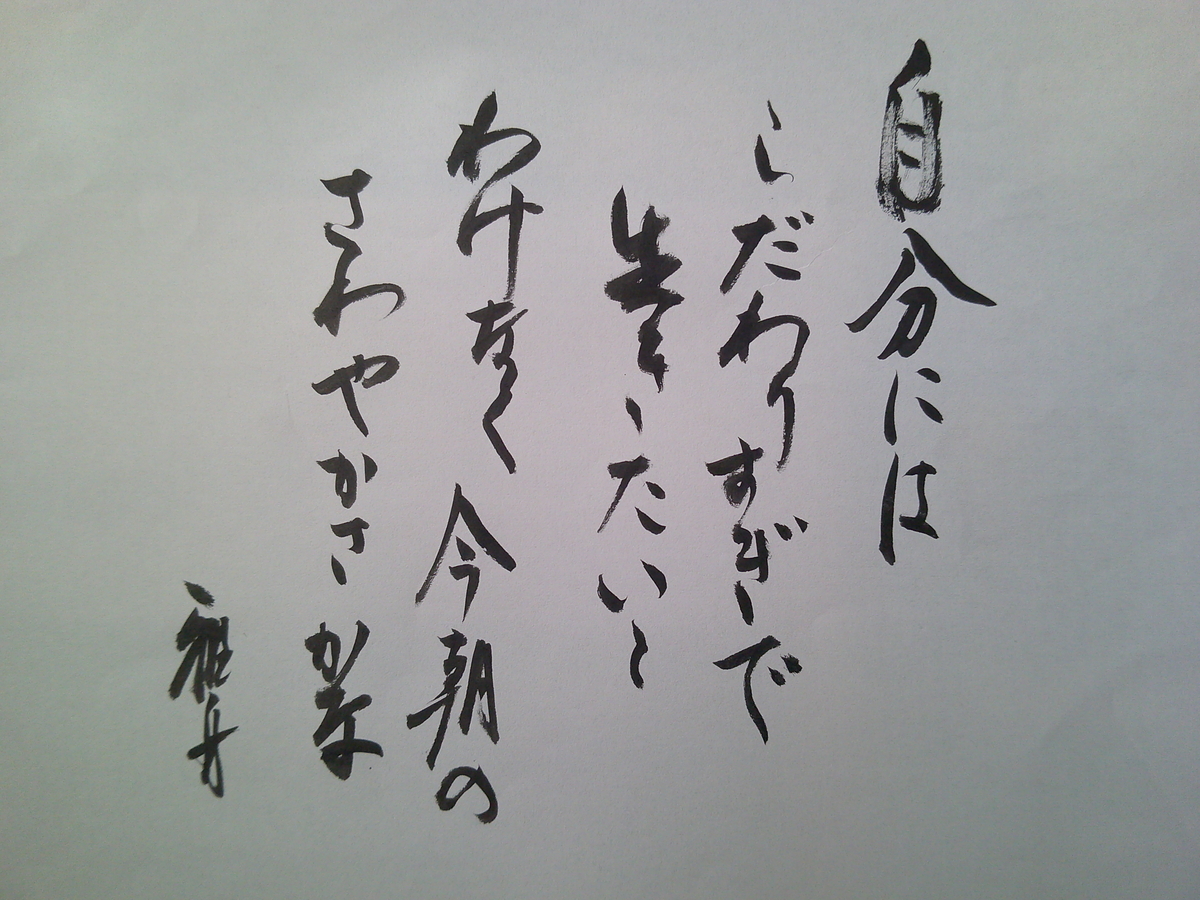 自分には
こだわりすぎで
生きたいと
わけなく 今朝の
さわやかさ かな